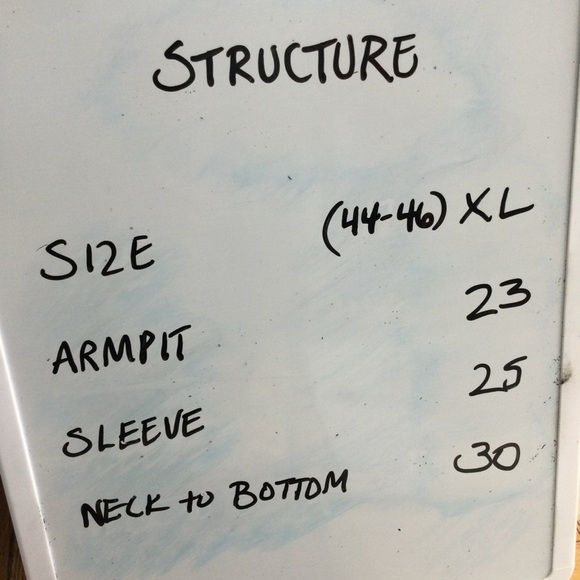 STRUCTURE
SIZE (44-46) XL
ARMPIT 23
SLEEVE 25
NECK to BOTTOM 30